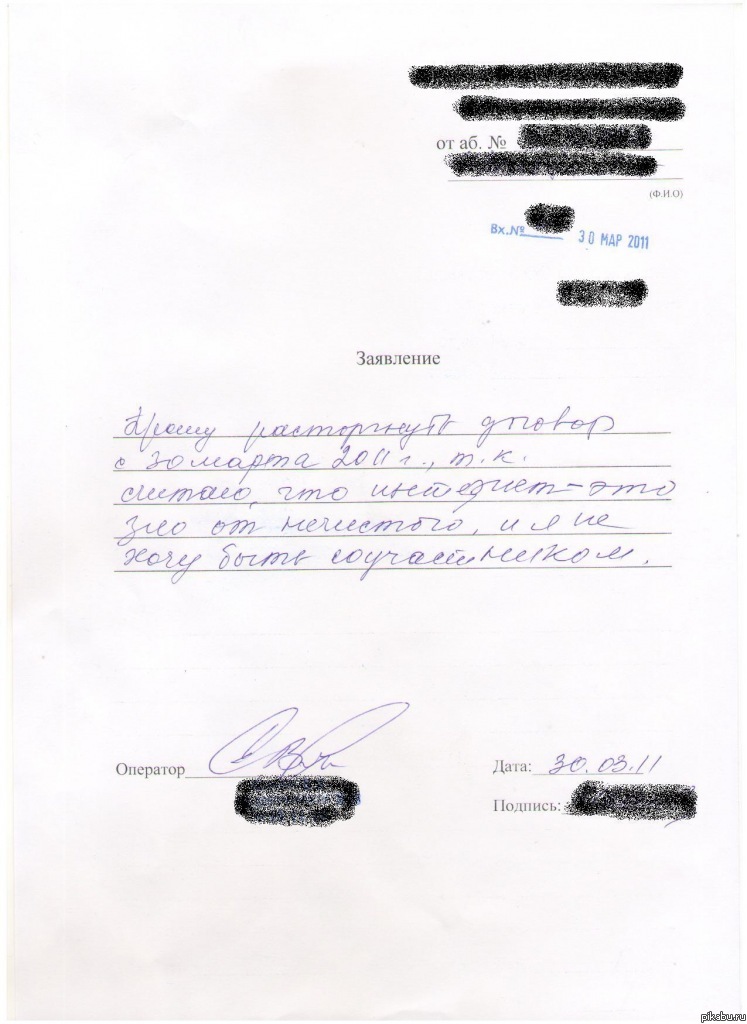 от аб. №
(Ф.И.О)
Вх.№ 30 МАР 2011
Заявление
Прошу расторгнуть договор
с 30 марта 2011 г., т.к.
считаю, что интернет – это
зло от нечистого, и я не
хочу быть соучастником.
Оператор
Дата: 30.03.11
Подпись:
pikabu.ru